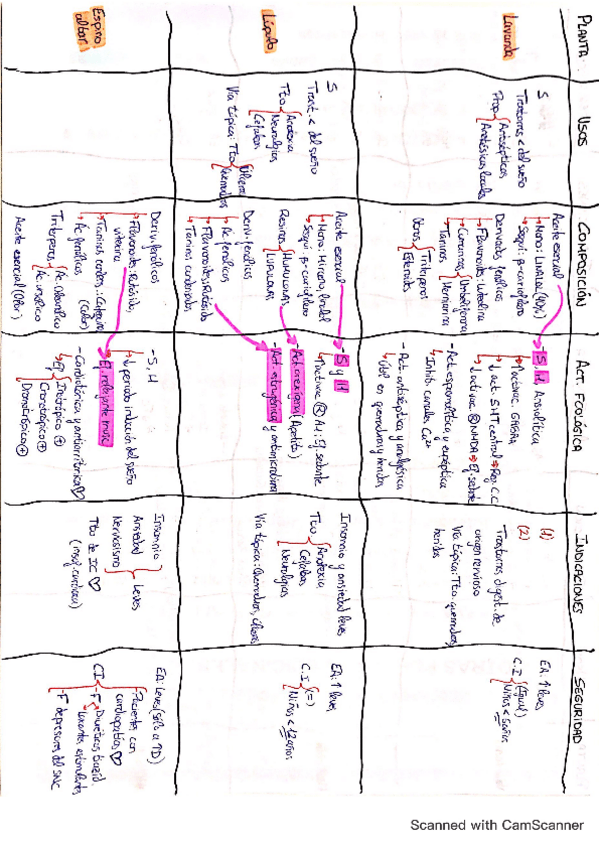 PLANTA
USOS
COMPOSICIÓN
ACT. FCOLÓGICA
INDICACIONES
SEGURIDAD
Lavanda
S
Trastornos < del sueño
Prop
Antisépticas
Anestésicas locales
Aceite esencial
Mono: Linalol
Sesqui: β-cariofileno
Derivados fenólicos
Flavonoides: Luteolina
Cumarinas
Umbeliferona
Herniarina
Taninos
Otros
Triterpenos
Esteroides
S, H, Ansiolítica
↑activac GABA
↓act. 5HT central → Reg. CC
↓activac ® NMDA → Ef. sedante
- Act. espasmolítica y eupéptica
Inhib. canales Ca2+
- Act. antiséptica y analgésica
Útil en quemaduras y heridas
(1)
(2)
Trastornos digest. de
origen nervioso
Vía tópica: Tto. quemaduras,
heridas
EA: ↑ leves
C.I
(Igual)
Niños <
Lúpulo
S
Trast. < del sueño
Tto
Anorexia
Neuralgias
Cefaleas
Vía tópica: Tto
Úlceras
Quemaduras
Aceite esencial
Mono: Mirceno, linalol
Sesqui: β-cariofileno
Resinas
HUMULONAS
LUPULONAS
Deriv. fenólicos
Ac. fenólicos
Flavonoides
Taninos condensados
- S y H
↑activac ® A1: Ef. sedante
- Act. orexígena (Apetito)
- Act. estrogénica y antimicrobiana
Insomnio y ansiedad leves
Tto
Anorexia
Cefaleas
Neuralgias
Vía tópica: Quemaduras, úlceras
EA: ↑ leves
C.I
(=)
Niños < 12 años
Espino
albar
Deriv. fenólicos
Flavonoides: Rutósido,
vitexina
Taninos condens.: Catequinas
Ac. fenólicos
Triterpenos
Ac. ursólico
Aceite esencial (Olor)
- S, H
↓periodo inducción del sueño
Ef. relajante musc
- Cardiotónica y antiarrítmica
Ef
Inotrópico +
Cronotrópico +
Dromotrópico +
Insomnio
Ansiedad
Nerviosismo
Leves
Tto de IC
EA: Leves
CI
Pacientes con
cardiopatías
- F
Diuréticos tiazid.
Laxantes estimulantes
- F depresores del SNC
Scanned with CamScanner